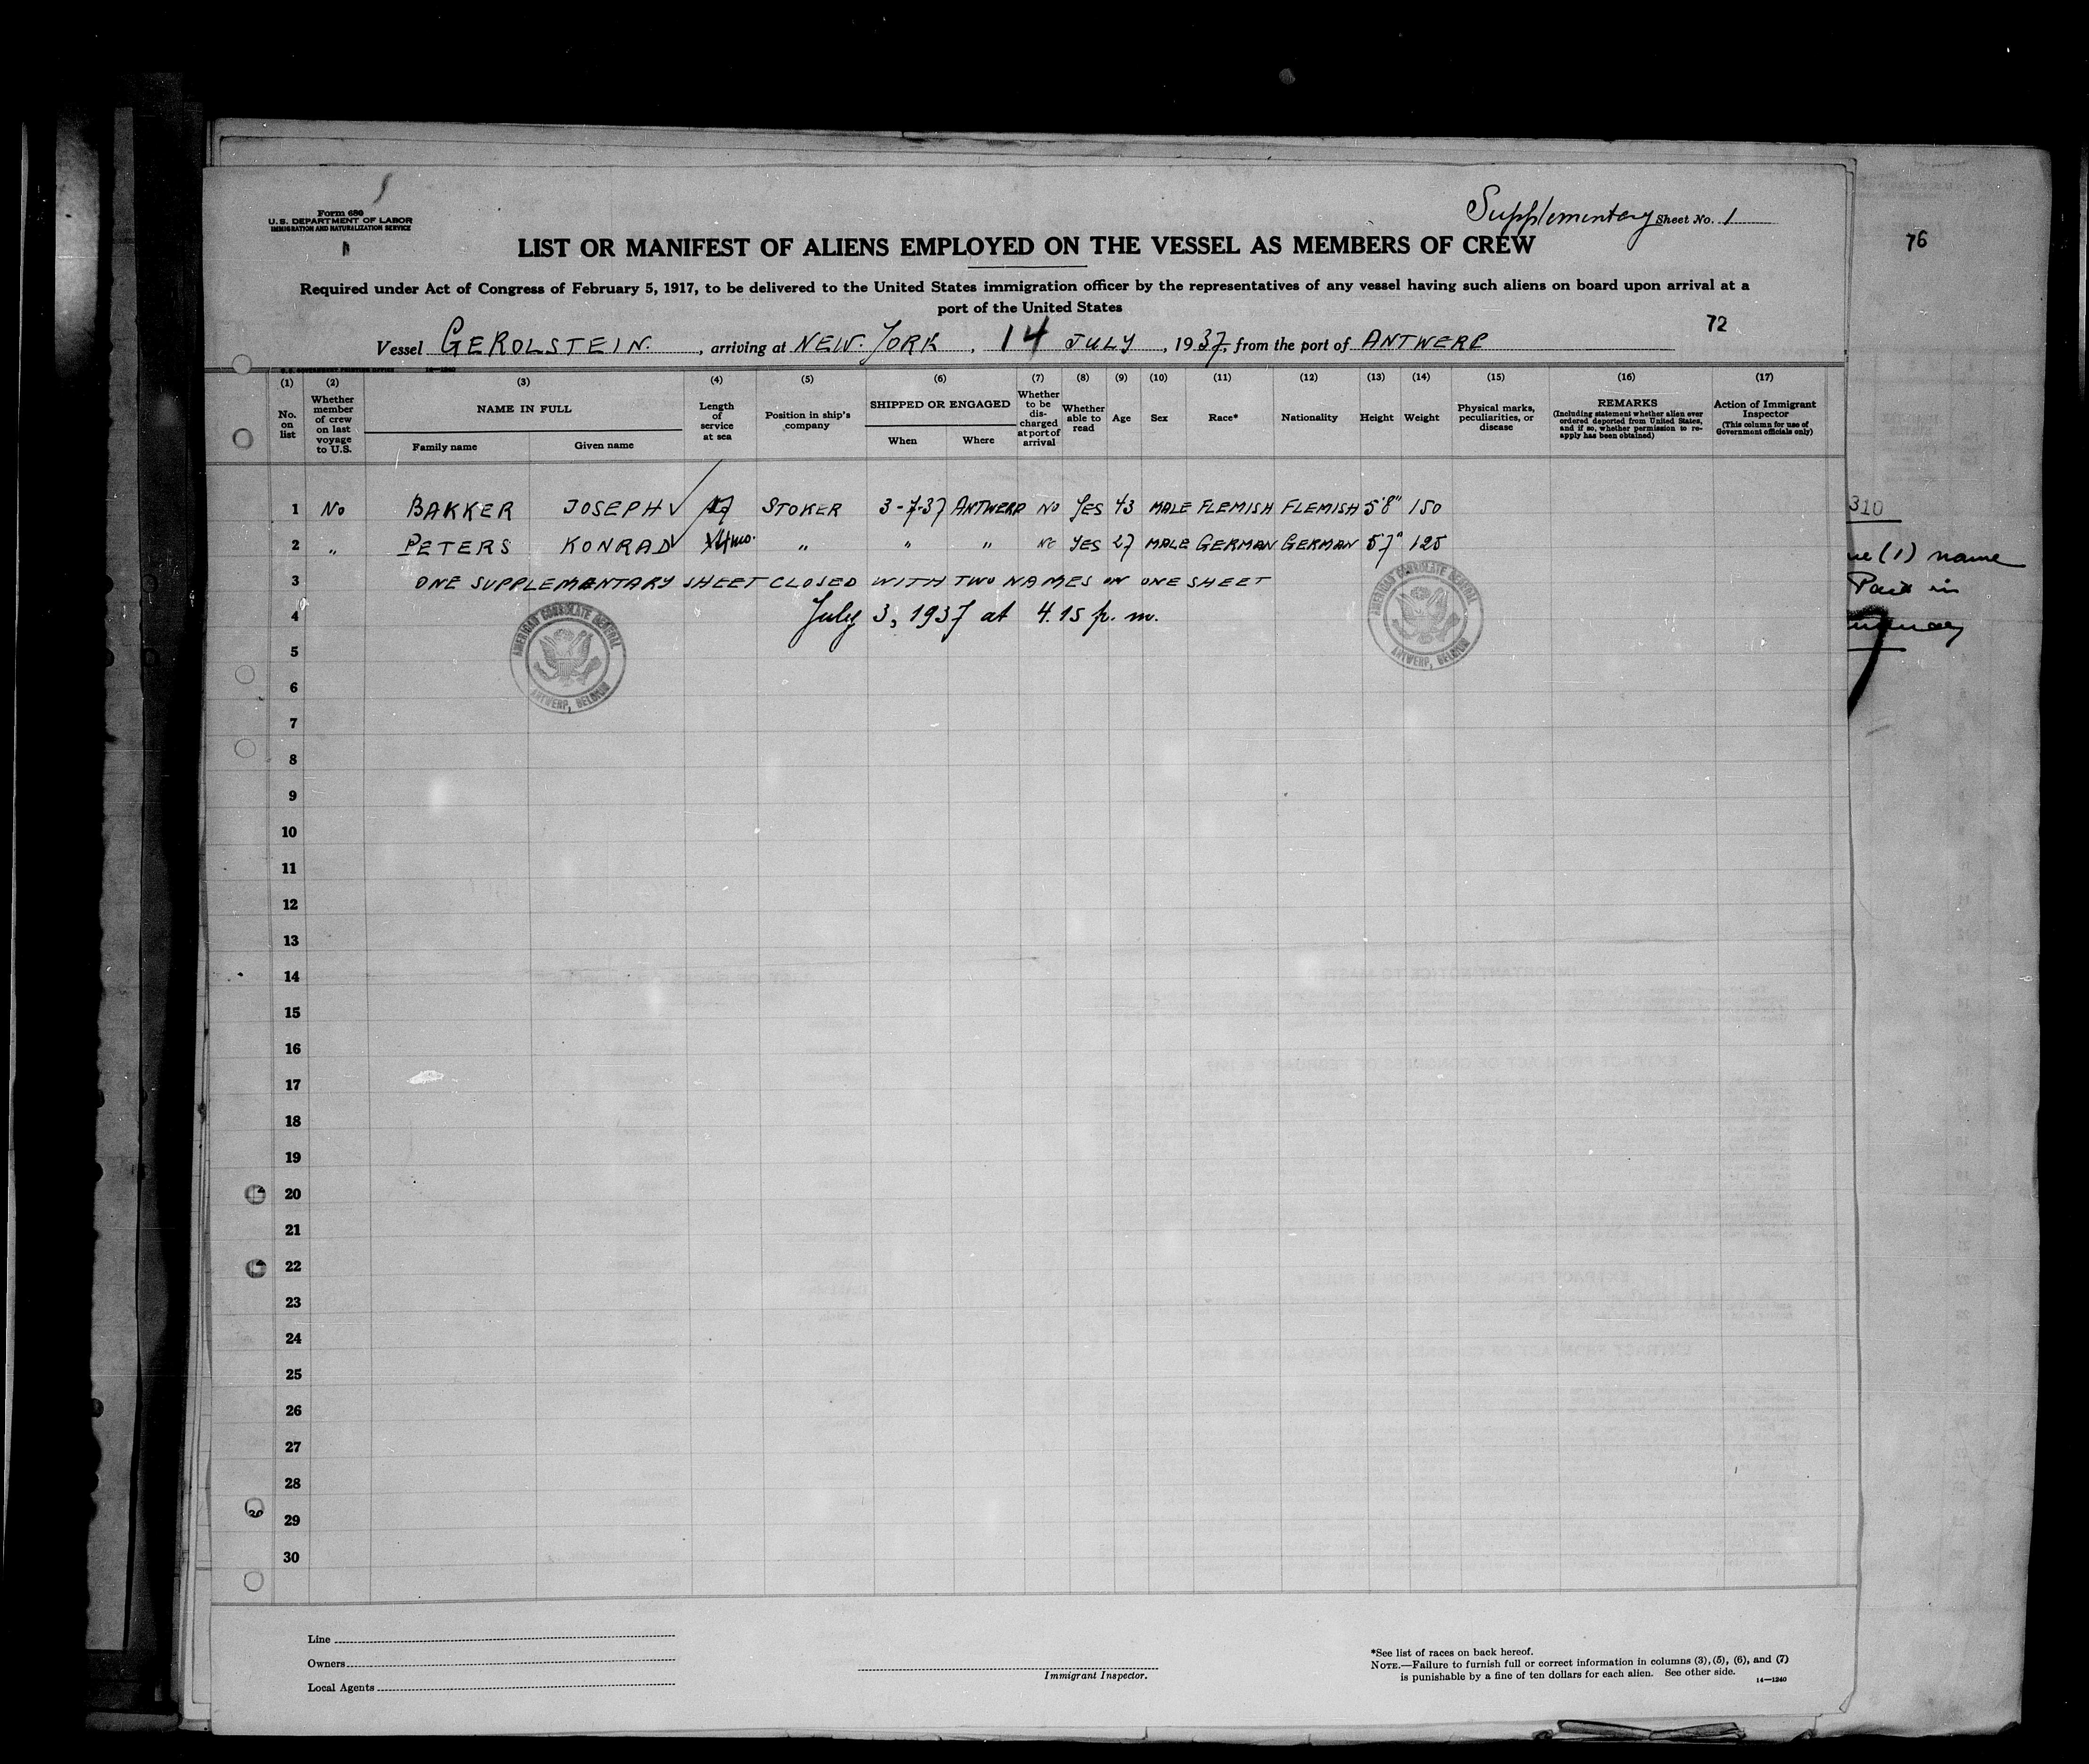 Form 680
U. S. DEPARTMENT OF LABOR
IMMIGRATION AND NATURALIZATION SERVICE
Supplementary Sheet No. 1
LIST OR MANIFEST OF ALIENS EMPLOYED ON THE VESSEL AS MEMBERS OF CREW
76
Required under Act of Congress of February 5, 1917, to be delivered to the United States immigration officer by the representatives of any vessel having such aliens on board upon arrival at a
port of the United States
72
Vessel GEROLSTEIN. , arriving at NEW. YORK , 14 JULY , 1937, from the port of ANTWERP
U. S. GOVERNMENT PRINTING OFFICE 14—1240
(1) (2) (3) (4) (5) (6) (7) (8) (9) (10) (11) (12) (13) (14) (15) (16) (17)
No. on list
Whether member of crew on last voyage to U.S.
NAME IN FULL
Family name
Given name
Length of service at sea
Position in ship's company
SHIPPED OR ENGAGED
When
Where
Whether to be dis-charged at port of arrival
Whether able to read
Age
Sex
Race*
Nationality
Height
Weight
Physical marks, peculiarities, or disease
REMARKS
(Including statement whether alien ever ordered deported from United States, and if so, whether permission to re-apply has been obtained)
Action of Immigrant Inspector
(This column for use of Government officials only)
1 No BAKKER JOSEPH STOKER 3-7-37 ANTWERP NO Yes 43 MALE FLEMISH FLEMISH 5'8" 150
2 " PETERS KONRAD " " " No Yes 27 MALE GERMAN GERMAN 5'7" 125
3 ONE SUPPLEMENTARY SHEET CLOSED WITH TWO NAMES ON ONE SHEET
4 July 3, 1937 at 4.15 p. m.
AMERICAN CONSULATE GENERAL
ANTWERP, BELGIUM
AMERICAN CONSULATE GENERAL
ANTWERP, BELGIUM
5
6
7
8
9
10
11
12
13
14
15
16
17
18
19
20
21
22
23
24
25
26
27
28
29
30
310
(1) name
Paid in
Line
Owners
Local Agents
Immigrant Inspector.
*See list of races on back hereof.
NOTE.—Failure to furnish full or correct information in columns (3), (5), (6), and (7)
is punishable by a fine of ten dollars for each alien. See other side.
14—1240